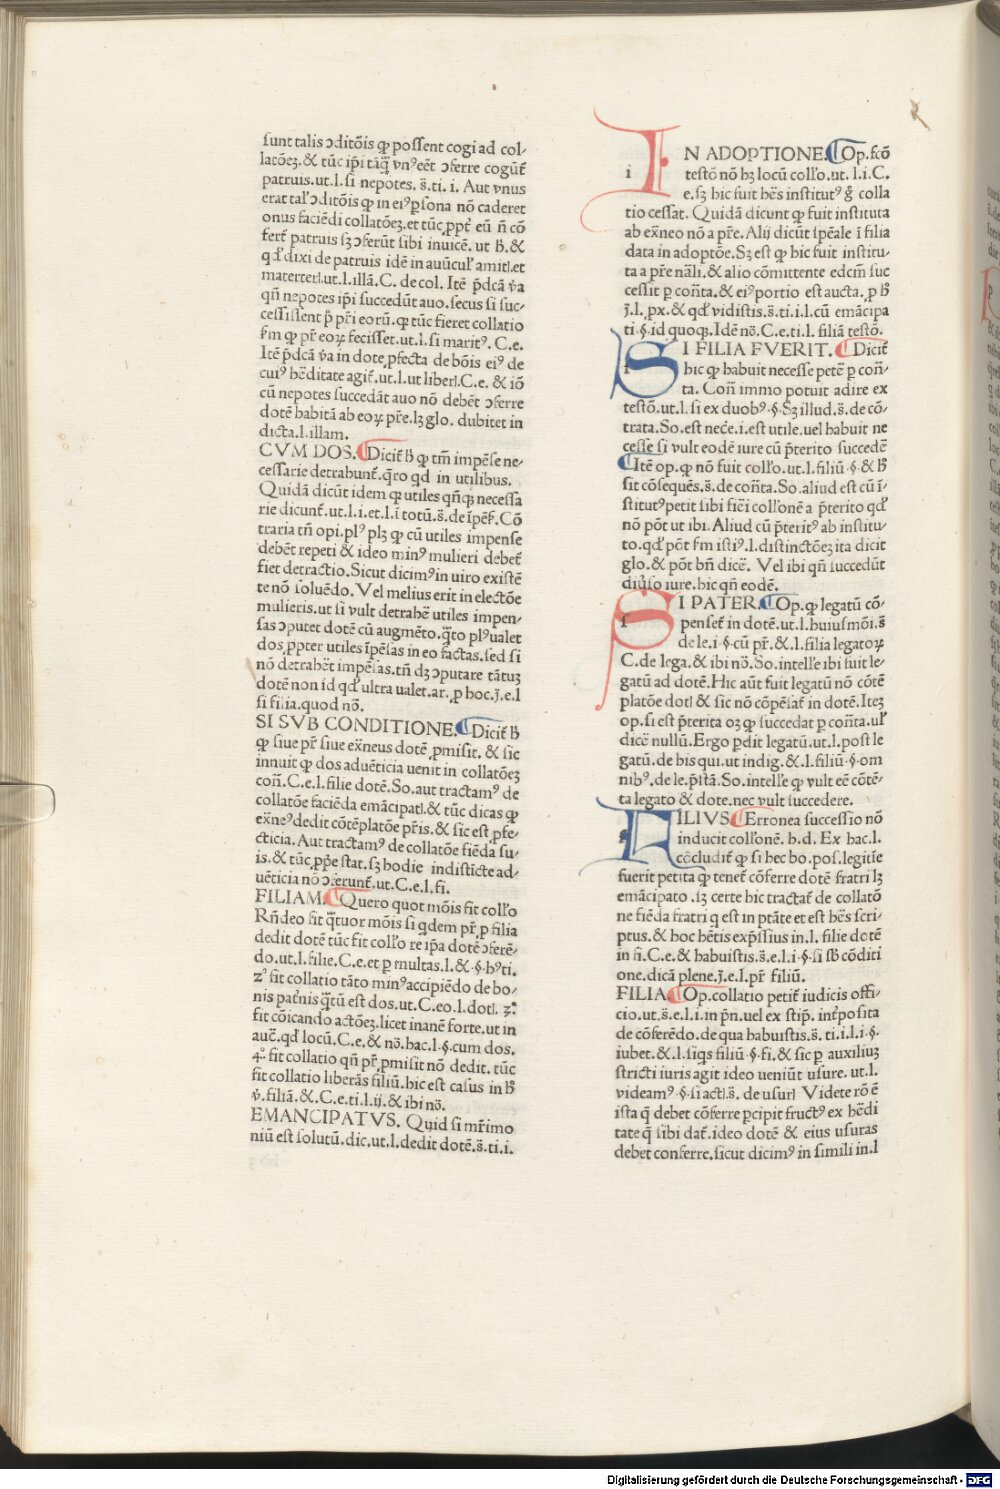 sunt talis ↄditõis ꝙ possent cogi ad col-
latõeʒ.& tũc ip̃i tãq̃ vnꝰeẽt ↄferre cogũt̃
patruis.ut.l.si nepotes. s̃.ti. i. Aut vnus
erat tal' ↄditõis ꝙ in eiꝰ ꝑsona nõ caderet
onus faciẽdi collatõeʒ.et tũc ꝓpt̃ eũ ñ cõ
fert̃ patruis sʒ ↄferũt sibi inuicẽ. ut ß.&
qđ dixi de patruis idẽ in auũcul' amitl.et
matertel.ut.l.illã. C. de col. Itẽ p̃dcã ṽa
qñ nepotes ip̃i succedũt auo. secus si suc-
cessissent p̃ pr̃i eorũ.ꝙ tũc fieret collatio
fm ꝙ pr̃ eoꝝ fecisset.ut.l.si maritꝰ. C.e.
Itẽ p̃dcã ṽa in dote ꝓfecta de bõis eiꝰ de
cuiꝰ hẽditate agit̃.ut.l.ut liberl.C.e. & iõ
cũ nepotes succedãt auo nõ debẽt ↄferre
dotẽ habitã ab eoꝝ pr̃e.lʒ glo. dubitet in
dicta.l.illam.
CVM DOS. Dicit̃ ß ꝙ tm̃ impẽse ne-
cessarie detrahunt̃.q̃ro qd in utilibus.
Quidã dicũt idem ꝙ utiles qñqʒ necessa
rie dicunt̃.ut.l.i.et.l.ĩ totũ.s̃.de ĩpẽs̃. Cõ
traria tñ opi.plꝰ plʒ ꝙ cũ utiles impense
debẽt repeti & ideo minꝰ mulieri debet̃
fiet detractio.Sicut dicimꝰin uiro existẽ
te nõ soluẽdo. Vel melius erit in electõe
mulieris.ut si vult detrahẽ utiles impen-
sas ↄputet dotẽ cũ augmẽto.q̃to plꝰualet
dos ꝓpter utiles ĩpẽsas in eo factas.sed si
nõ detrahẽt impẽsas.tñ dʒ ↄputare tãtuʒ
dotẽ non id qđ ultra ualet.ar. ꝓ hoc.J̃.e.l
si filia.quod nõ.
SI SVB CONDITIONE. Dicit̃ ß
ꝙ siue pr̃ siue ex̃neus dotẽ ꝓmisit. & sic
innuit ꝙ dos aduẽticia uenit in collatõeʒ
coñ.C.e.l.filie dotẽ.So.aut tractamꝰ de
collatõe faciẽda emãcipatl.& tũc dicas ꝙ
ex̃neꝰdedit cõtẽplatõe pr̃is.& sic est ꝓfe-
cticia.Aut tractamꝰ de collatõe fiẽda su-
is.& tũc ꝓp̃e stat. sʒ hodie indisticte ad-
uẽticia nõ ↄferunt̃.ut.C.e.l.fi.
FILIAM. Quero quot mõis fit coll'o
Rñdeo fit q̃tuor mõis si qdem pr̃ ꝓ filia
dedit dotẽ tũc fit coll'o re ip̃a dotẽ ↄferẽ-
do.ut.l.filie.C.e.et ꝑ multas.l.&.§.hꝰti.
zꝰ fit collatio tãto minꝰaccipiẽdo de bo-
nis pat̃nis q̃tũ est dos.ut.C.eo.l.dotl. ʒꝰ.
fit cõicando actõeʒ.licet inanẽ forte.ut in
auc̃.qđ locũ.C.e.& nõ.hac.l.§.cum dos.
4ꝰ fit collatio qñ pr̃ ꝓmisit nõ dedit. tũc
fit collatio liberãs filiũ.hic est casus in ß
ṽ.filiã.&.C.e.ti.l.ij.& ibi nõ.
EMANCIPATVS. Quid si mr̃imo
niũ est solutũ.dic.ut.l.dedit dotẽ.s̃.ti.i.
IN ADOPTIONE. Op.scõ
testõ nõ hʒ locũ coll'o.ut.l.i.C.
e.sʒ hic fuit hẽs institutꝰ g̃ colla
tio cessat. Quidã dicunt ꝙ fuit instituta
ab ex̃neo nõ a pr̃e. Alij dicũt sp̃eale ĩ filia
data in adoptõe.Sʒ est ꝙ hic fuit institu-
ta a pr̃e nãli.& alio cõmittente edcm̃ suc
cessit ꝑ coñta.& eiꝰportio est aucta. ꝓ ß
J̃.l.px.& qđ vidistis.s̃.ti.i.l.cũ emãcipa
ti.§.id quoqʒ.Idẽ nõ.C.e.ti.l.filiã testõ.
SI FILIA FVERIT. Dicit̃
hic ꝙ habuit necesse petẽ ꝑ coñ-
ta. Coñ immo potuit adire ex
testõ.ut.l.si ex duobꝰ.§.Sʒ illud.s̃.de cõ-
trata.So.est nec̃e.i.est utile.uel habuit ne
cesse si vult eodẽ iure cũ p̃terito succedẽ
Itẽ op.ꝙ nõ fuit coll'o.ut.l.filiũ.§.& ß
fit cõsequẽs.s̃.de coñta.So.aliud est cũ ĩ-
stitutꝰpetit sibi fiẽi coll'onẽ a p̃terito qđ
nõ põt ut ibi. Aliud cũ p̃teritꝰ ab institu-
to.qđ põt fm istiꝰ.l.distinctõeʒ ita dicit
glo.& põt bñ dicẽ. Vel ibi qñ succedũt
diũso iure.hic qñ eodẽ.
SI PATER. Op.ꝙ legatũ cõ-
penset̃ in dotẽ.ut.l.huiusmõi.s̃
de le.i.§.cũ pr̃.&.l.filia legatoꝝ
C.de lega.& ibi nõ.So.intell'e ibi fuit le-
gatũ ad dotẽ.Hic aũt fuit legatũ nõ cõtẽ
platõe dotl & sic nõ cõpẽsat̃ in dotẽ.Iteʒ
op.si est p̃terita oʒ ꝙ succedat ꝑ coñta.ul'
dicẽ nullũ.Ergo ꝑdit legatũ.ut.l.post le
gatũ.de his qui.ut indig.&.l.filiũ.§.om
nibꝰ.de le.p̃stã.So.intell'e ꝙ vult eẽ cõtẽ-
ta legato & dote.nec vult succedere.
FILIVS Erronea successio nõ
inducit coll'onẽ. h.d. Ex hac.l.
cõcludit̃ ꝙ si hec bo.pos.legitĩe
fuerit petita ꝙ tenet̃ cõferre dotẽ fratri lʒ
emãcipato.sʒ certe hic tractat̃ de collatõ
ne fiẽda fratri q est in ptãte et est hẽs scri-
ptus.& hoc hẽtis exp̃ssius in.l. filie dotẽ
in fi.C.e.& habuistis.s̃.e.l.i.§.si sß cõditi
one.dicã plene.J̃.e.l.pr̃ filiũ.
FILIA Op.collatio petit̃ iudicis offi-
cio.ut.s̃.e.l.i.in pñ.uel ex stip. int̃posita
de cõferẽdo.de qua habuistis.s̃. ti.i.l.i.§.
iubet.&.l.siqs filiũ.§.fi.& sic ꝑ auxiliuʒ
stricti iuris agit ideo ueniũt usure. ut.l.
videamꝰ.§.si actl.s̃. de usurl Videte rõ ẽ
ista q̃ debet cõferre ꝑcipit fructꝰ ex hẽdi
tate q̃ sibi dat̃.ideo dotẽ & eius usuras
debet conferre.sicut dicimꝰ in simili in.l
Digitalisierung gefördert durch die Deutsche Forschungsgemeinschaft - DFG